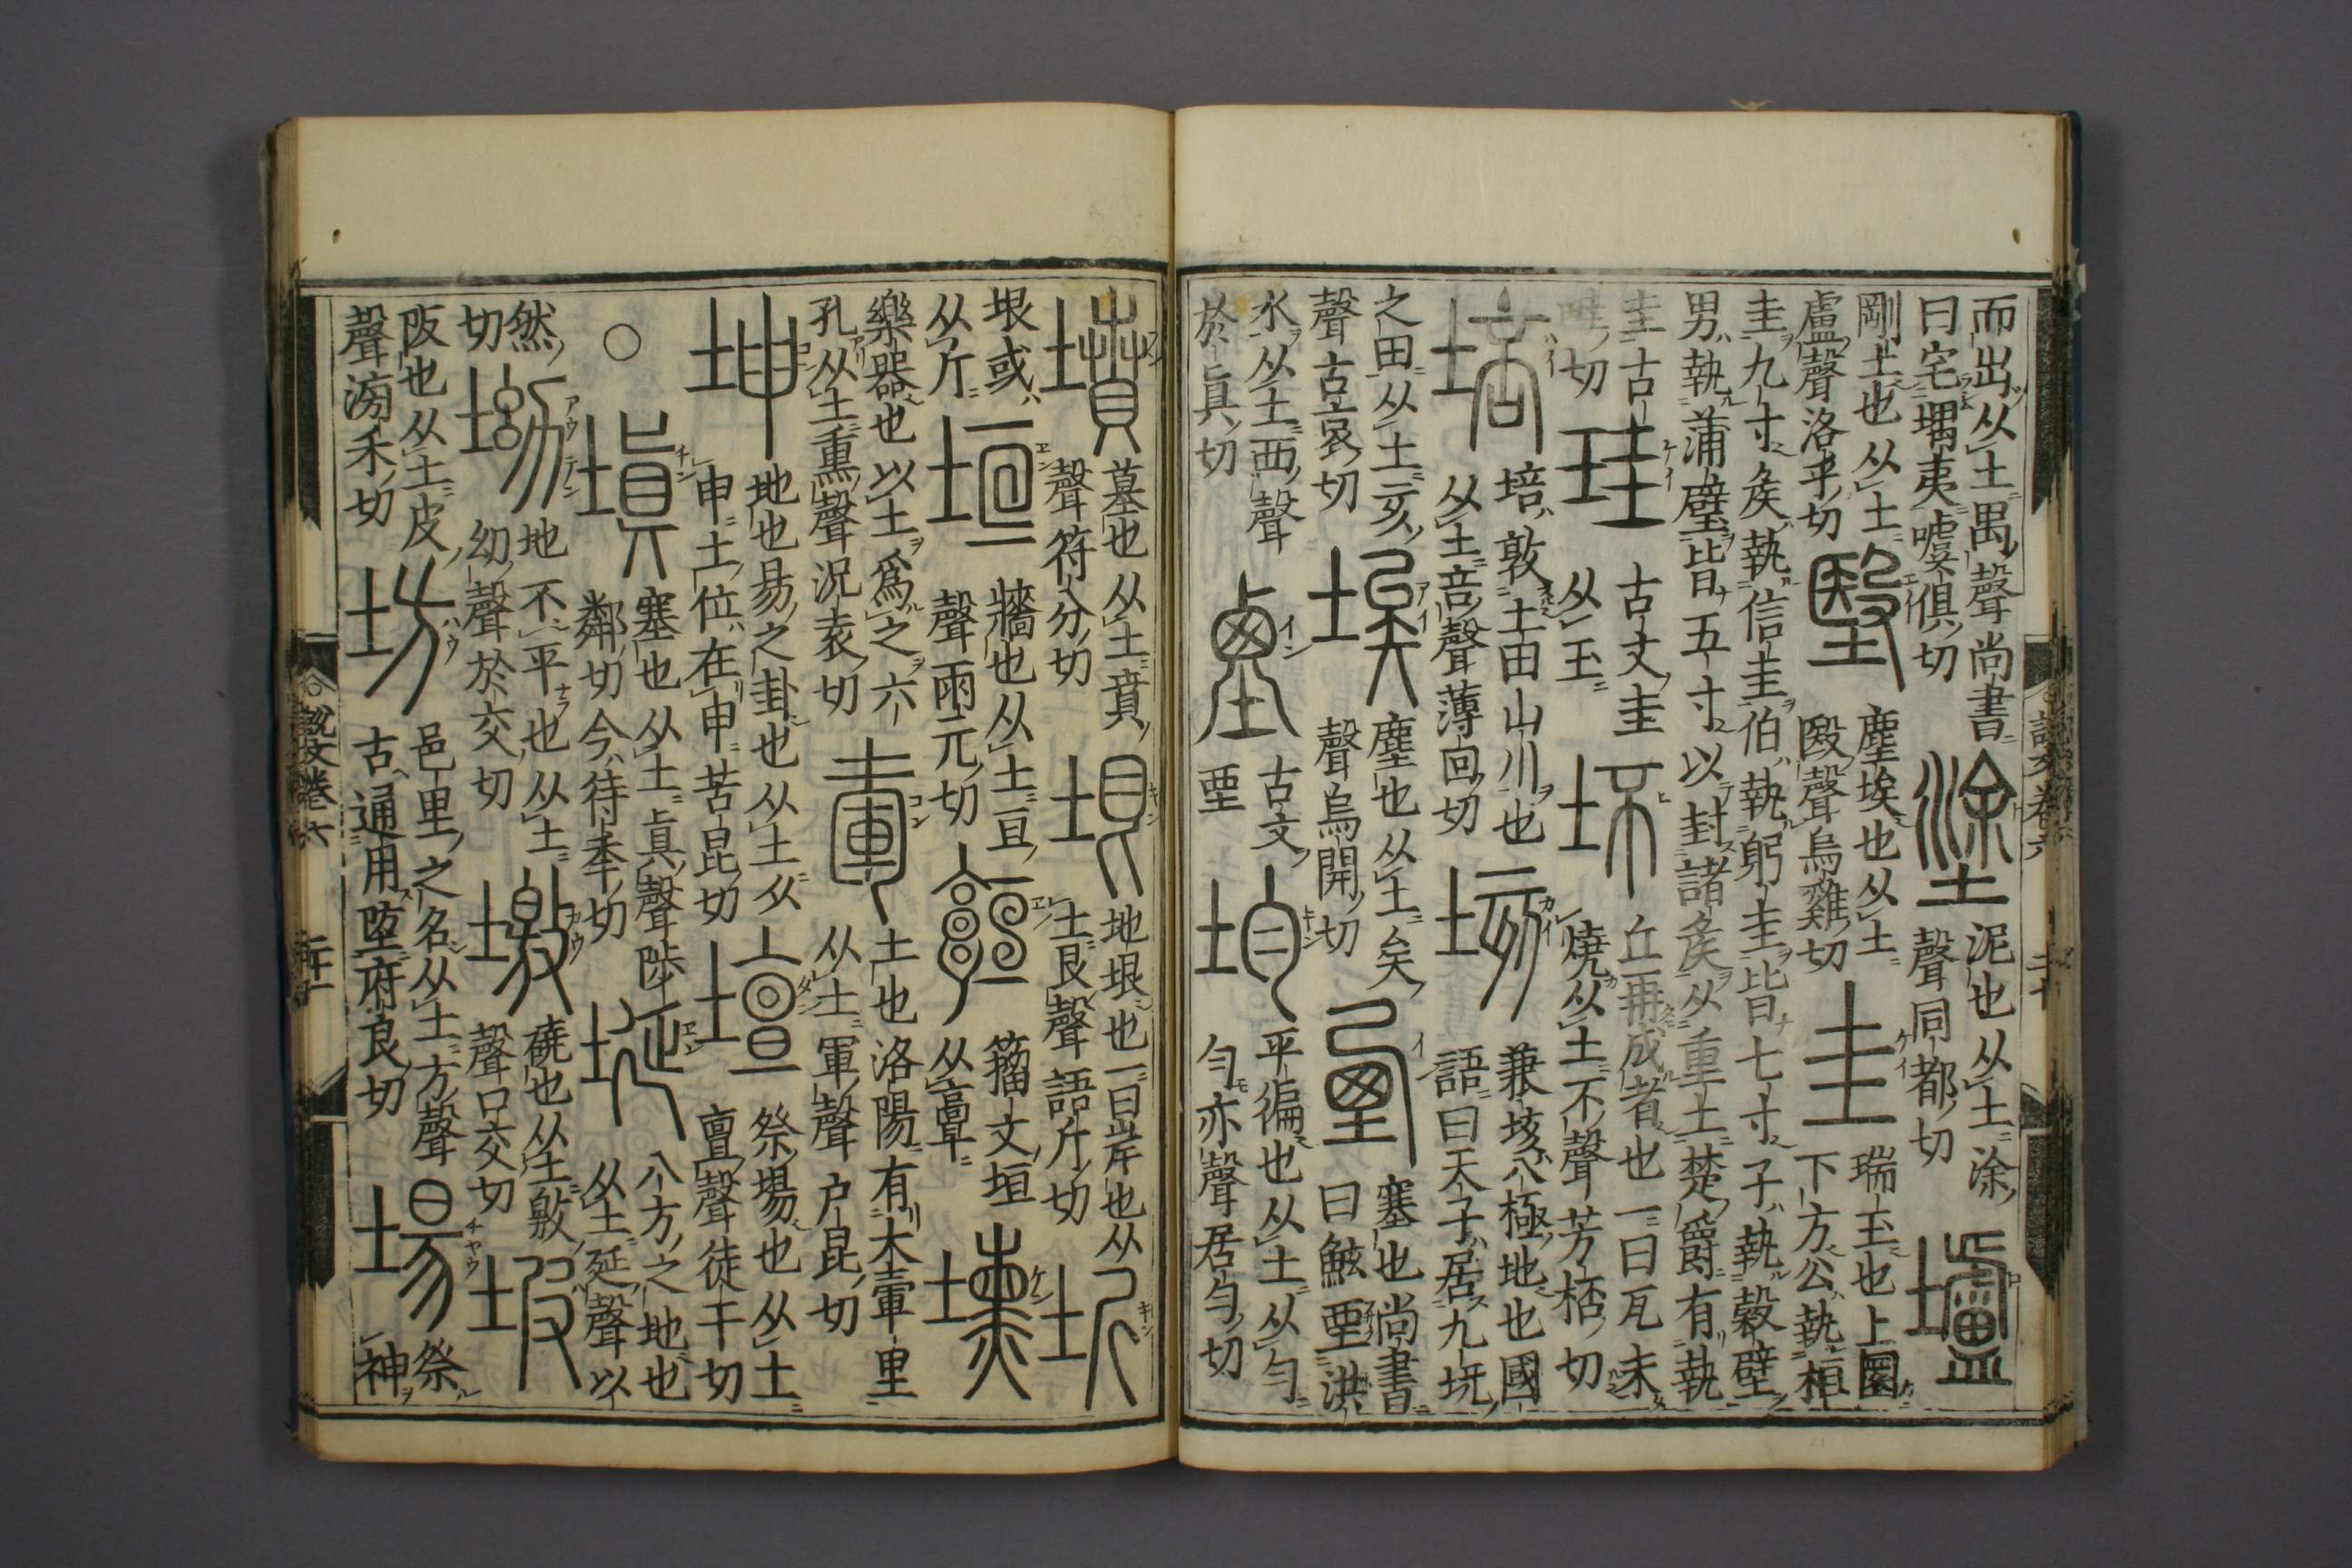 説文卷六 二十
而出从土禺聲尚書
曰宅堣夷噳俱切
塗
泥也从土涂
聲同都切
壚
剛土也从土
盧聲洛乎切
塵埃也从土
殹聲烏雞切
圭
瑞玉也上圜
下方公執桓
圭九寸矦執信圭伯執躬圭皆七寸子執穀璧
男執蒲璧皆五寸以封諸矦从重土楚爵有執
圭古
畦切
珪
古文圭
从玉
坏
丘再成者也一曰瓦未
燒从土不聲芳桮切
培
培敦土田山川也
从土咅聲薄回切
垓
兼垓八極地也國
語曰天子居九垓
之田从土亥
聲古哀切
埃
塵也从土矣
聲烏開切
垔
塞也尚書
曰鯀垔洪
水从土西聲
於真切
古文
垔
均
平徧也从土从勻
勻亦聲居勻切
墳
墓也从土賁
聲符分切
垠
地垠也一曰岸也从
土艮聲語斤切
圻
垠或
从斤
垣
牆也从土亘
聲雨元切
籀文垣
从𩫖
壎
樂器也以土爲之六
孔从土熏聲況袁切
土也洛陽有大里
从土軍聲户昆切
坤
地也易之卦也从土从
申土位在申苦昆切
壇
祭場也从土
亶聲徒干切
○
塡
塞也从土眞聲陟
鄰切今待秊切
埏
八方之地也
从土延聲以
然
切
坳
地不平也从土
幼聲於交切
墽
磽也从土敫
聲口交切
坡
阪也从土皮
聲滂禾切
坊
邑里之名从土方聲
古通用堕府良切
場
祭
神
説文卷六 二十一